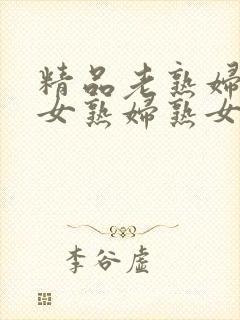 精品老熟婦
女熟婦熟女
李谷虚